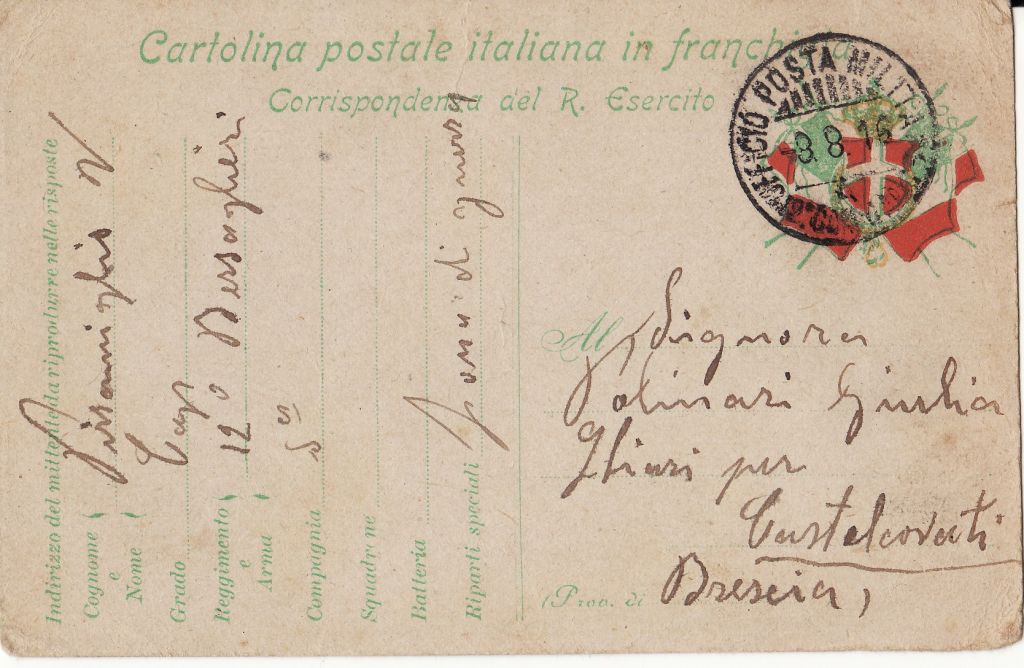 Cartolina postale italiana in franchigia
Corrispondenza del R. Esercito
UFFICIO POSTA MILITARE
-8.8.16
Indirizzo del mittente da riprodurre nelle risposte
Cognome
e
Nome
Grado
Cap
Reggimento
e
Arma
12º Bersaglieri
Compagnia
5ª
Squadrone
Batteria
Riparti speciali
Zona di guerra
Al Signora
Polinari Giulia
Chiari per
Castelcovati
(Prov. di Brescia)